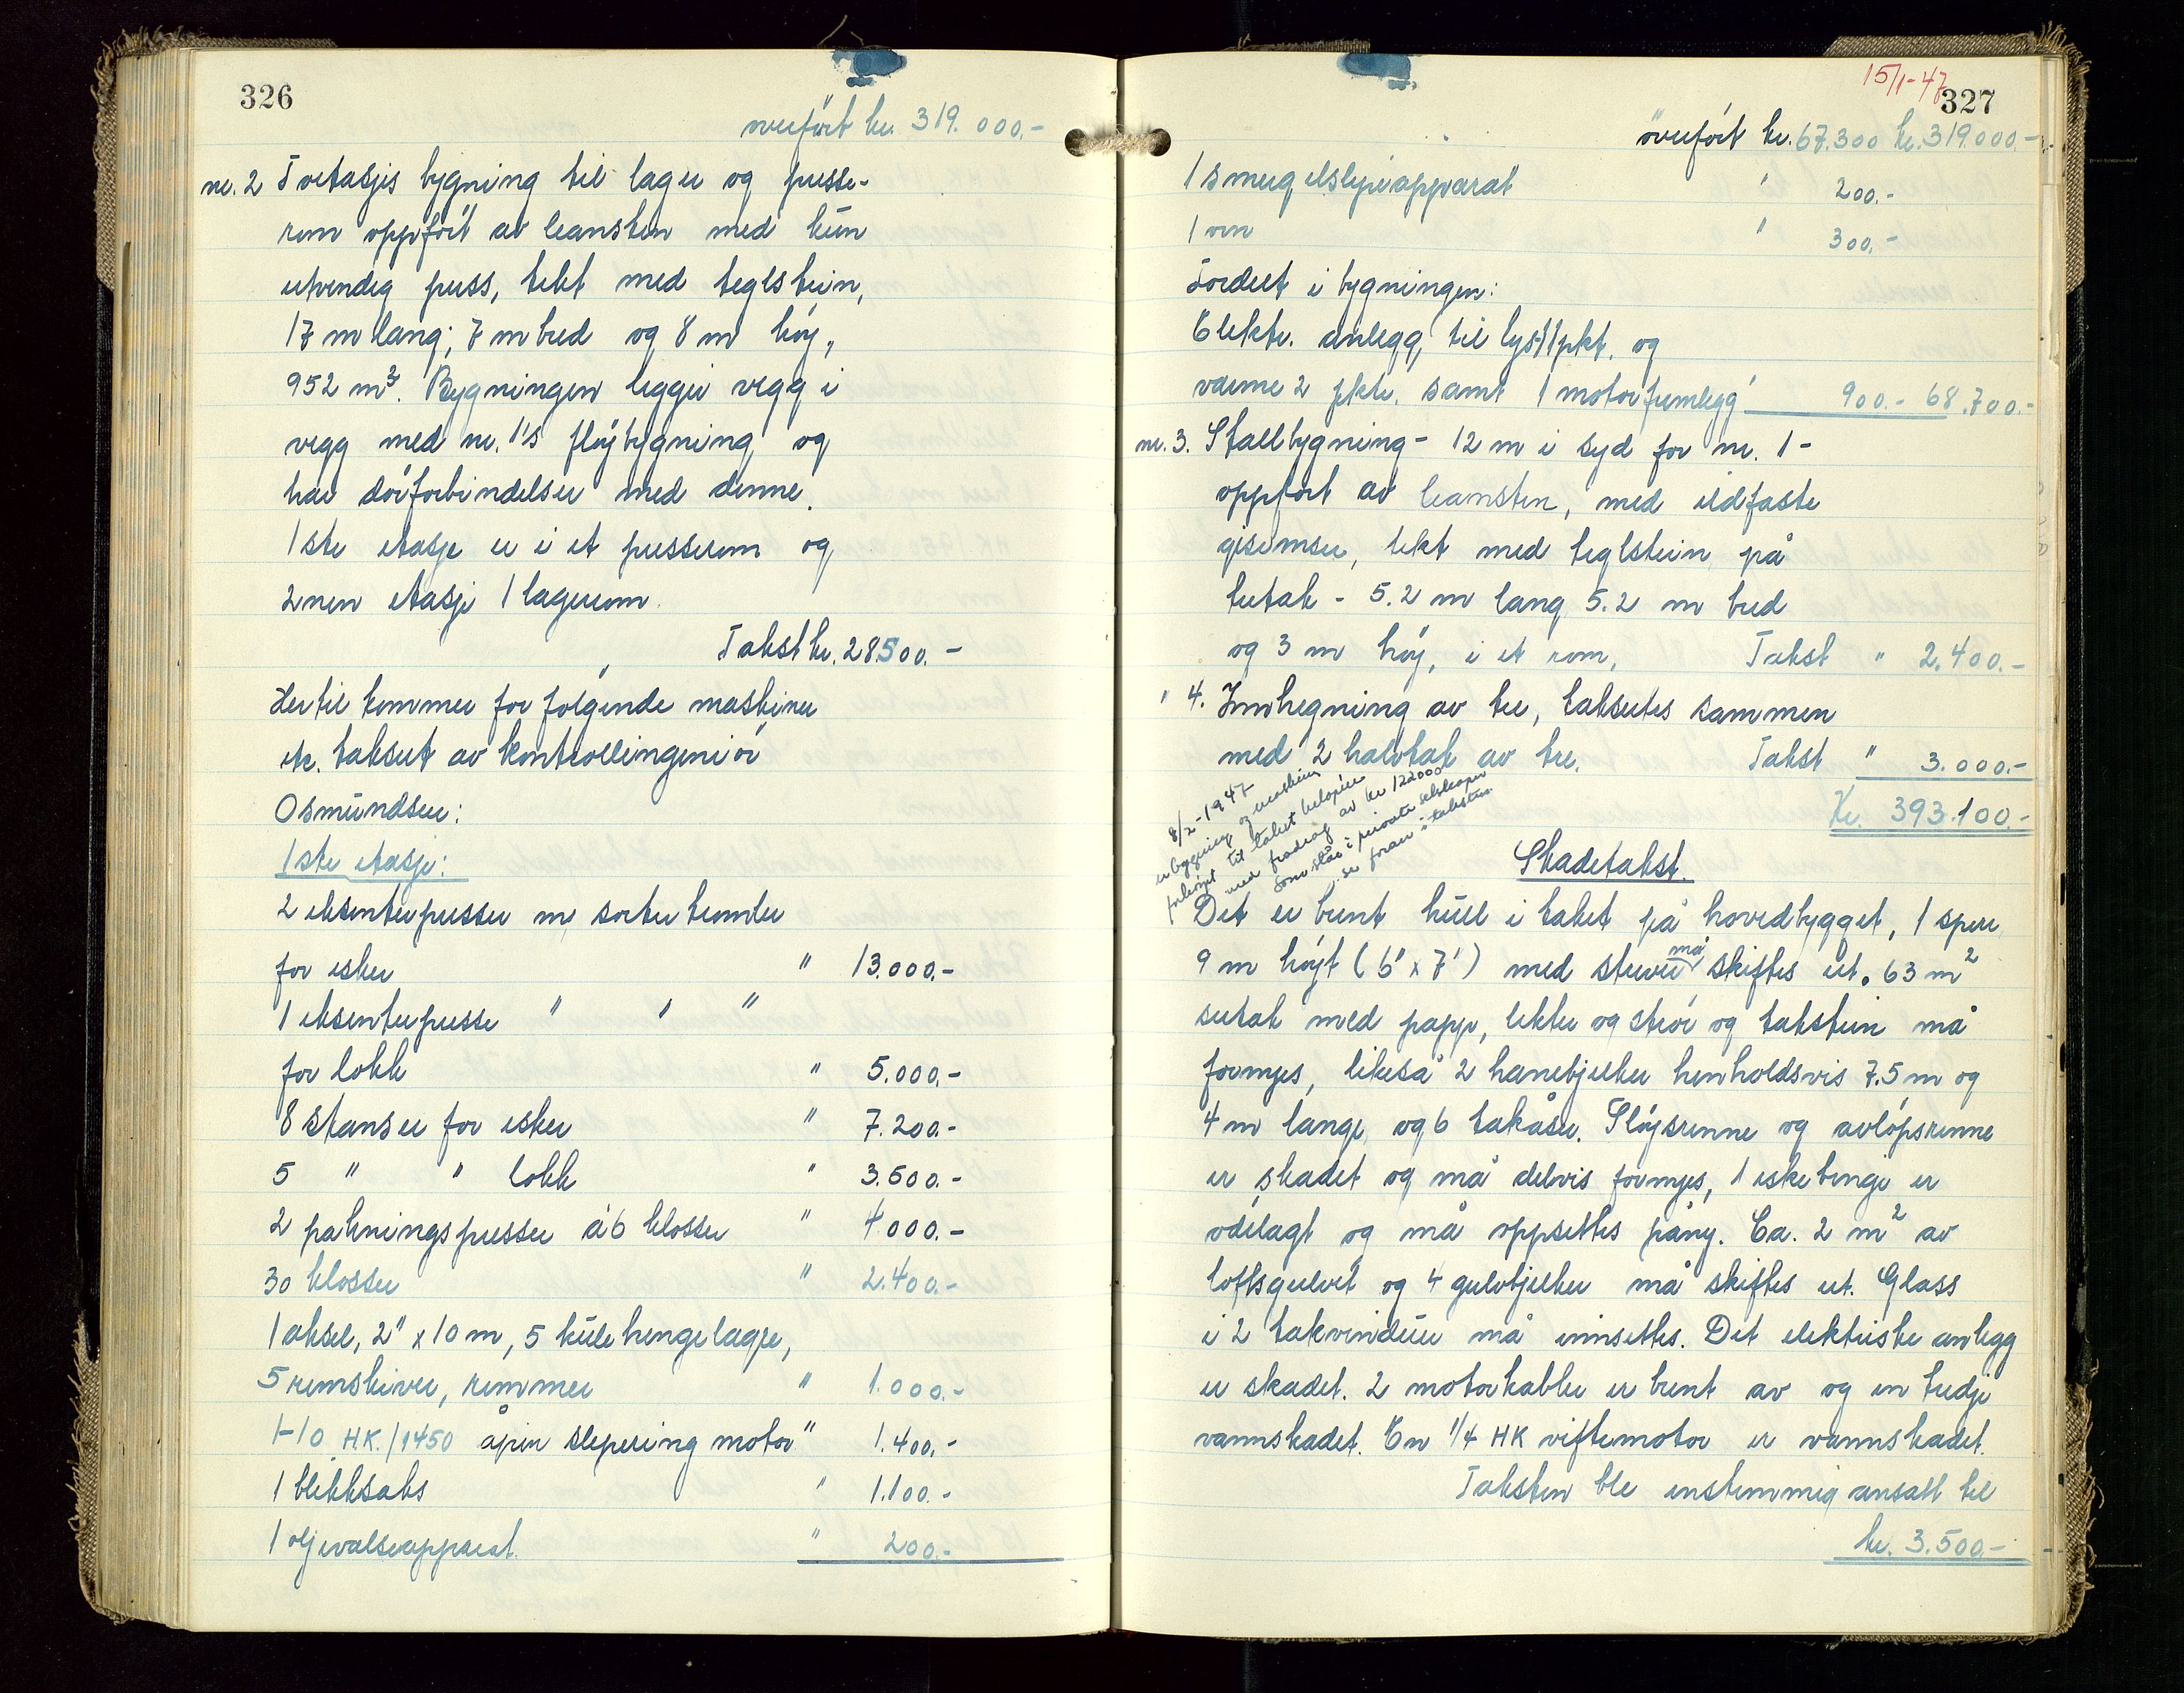 326
overført kr. 319.000.-
nr. 2 Toetasjes bygning til lager og presse-
rom oppført av leansten med kun
utvendig puss, tekt med teglstein,
17 m lang; 7 m bred og 8 m høy,
952 m³. Bygningen ligger vegg i
vegg med nr. 1's fløybygning og
har dørforbindelser med denne.
1ste etasje er i et presserom og
2nen etasje 1 lagerrom.
Takst kr. 28500.-
Hertil kommer for følgende maskiner
etc. taksert av kontrollingeniør
Osmundsen:
1ste etasje:
2 eksenterpresser m/ sorter tromler
for esker " 13.000.-
1 eksenterpresse " " "
for lokk " 5.000.-
8 stanser for esker " 7.200.-
5 " " lokk " 3.500.-
2 pakningspresser á 6 klosser " 4.000.-
30 klosser " 2.400.-
1 aksel, 2" x 10 m, 5 kule hengelagre,
5 remskiver, remmer " 1.000.-
1-10 HK./1450 åpen slepering motor " 1.400.-
1 blikksaks " 1.100.-
1 oljevalseapparat " 200.-
15/1-47
327
overført kr. 67.300 kr. 319.000.-
1 smergelslipeapparat " 200.-
1 ovn " 300.-
Fordelt i bygningen:
Elektr. anlegg til lys 11 pkt. og
varme 2 pkter. samt 1 motorfremlegg " 900.- 68.700.-
nr. 3. Stallbygning - 12 m i syd for nr. 1 -
oppført av leansten, med ildfaste
gesimser, tekt med teglstein på
tretak - 5.2 m lang 5.2 m bred
og 3 m høy, i et rom, Takst " 2.400.-
" 4. Innhegning av tre, takseres sammen
med 2 halvtak av tre. Takst " 3.000.-
Kr. 393.100.-
8/2-1947
er bygning og maskiner
forhøyet til takst beløpene
med fradrag av kr 122000
som står i private selskaper
se foran i taksten.
Skadetakst.
Det er brent hull i taket på hovedbygget, 1 sperre
9 m høyt (6" x 7") med stuver må skiftes ut. 63 m²
sutak med papp, lekter og strør og takstein må
fornyes, likeså 2 hanebjelker henholdsvis 7.5 m og
4 m lange og 6 takåser. Sløysrenne og avløpsrenne
er skadet og må delvis fornyes, 1 eskebinge er
ødelagt og må oppsettes påny. Ca. 2 m² av
loftsgulvet og 4 gulvbjelker må skiftes ut. Glass
i 2 takvinduer må innsettes. Det elektriske anlegg
er skadet. 2 motorkabler er brent av og en tredje
vannskadet. En 1/4 HK viftemotor er vannskadet.
Taksten ble enstemmig ansatt til
kr. 3.500.-